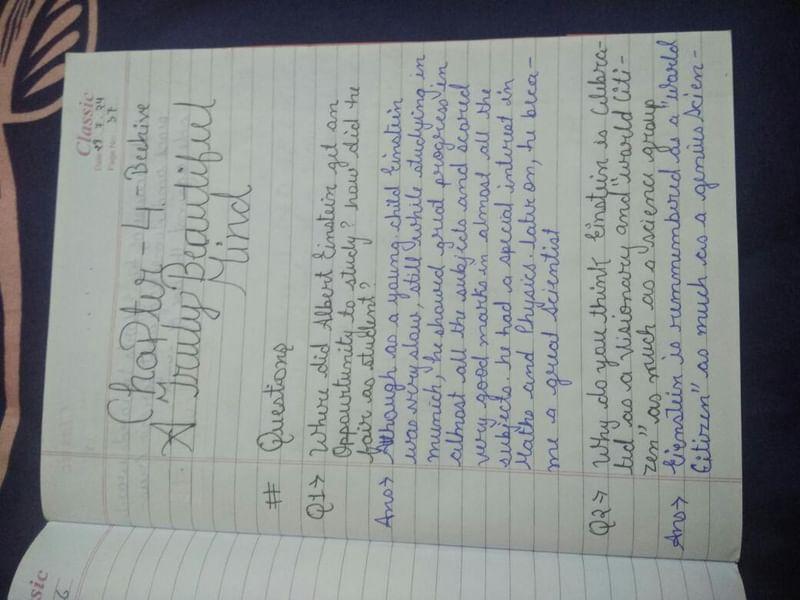 Classic
Chapter - 4 - Beehive
A Truly Beautiful
Mind
# Questions
Q1> Where did Albert Einstein get an
Oppourtunity to study? how did he
fair as student?
Ans> Although as a young child Einstein
was very slow, still while studying in
munich, he showed great progress in
almost all the subjects and scored
very good marks in almost all the
subjects. he had a special interest in
Maths and Physics. later on, he beca-
me a great scientist
Q2> Why do you think Einstein is celebra-
ted as a Visionary and "world Citi-
zen" as much as a science group
Ans> Eienstein is rummembered as a "world
Citizen" as much as a genius scien-
sic